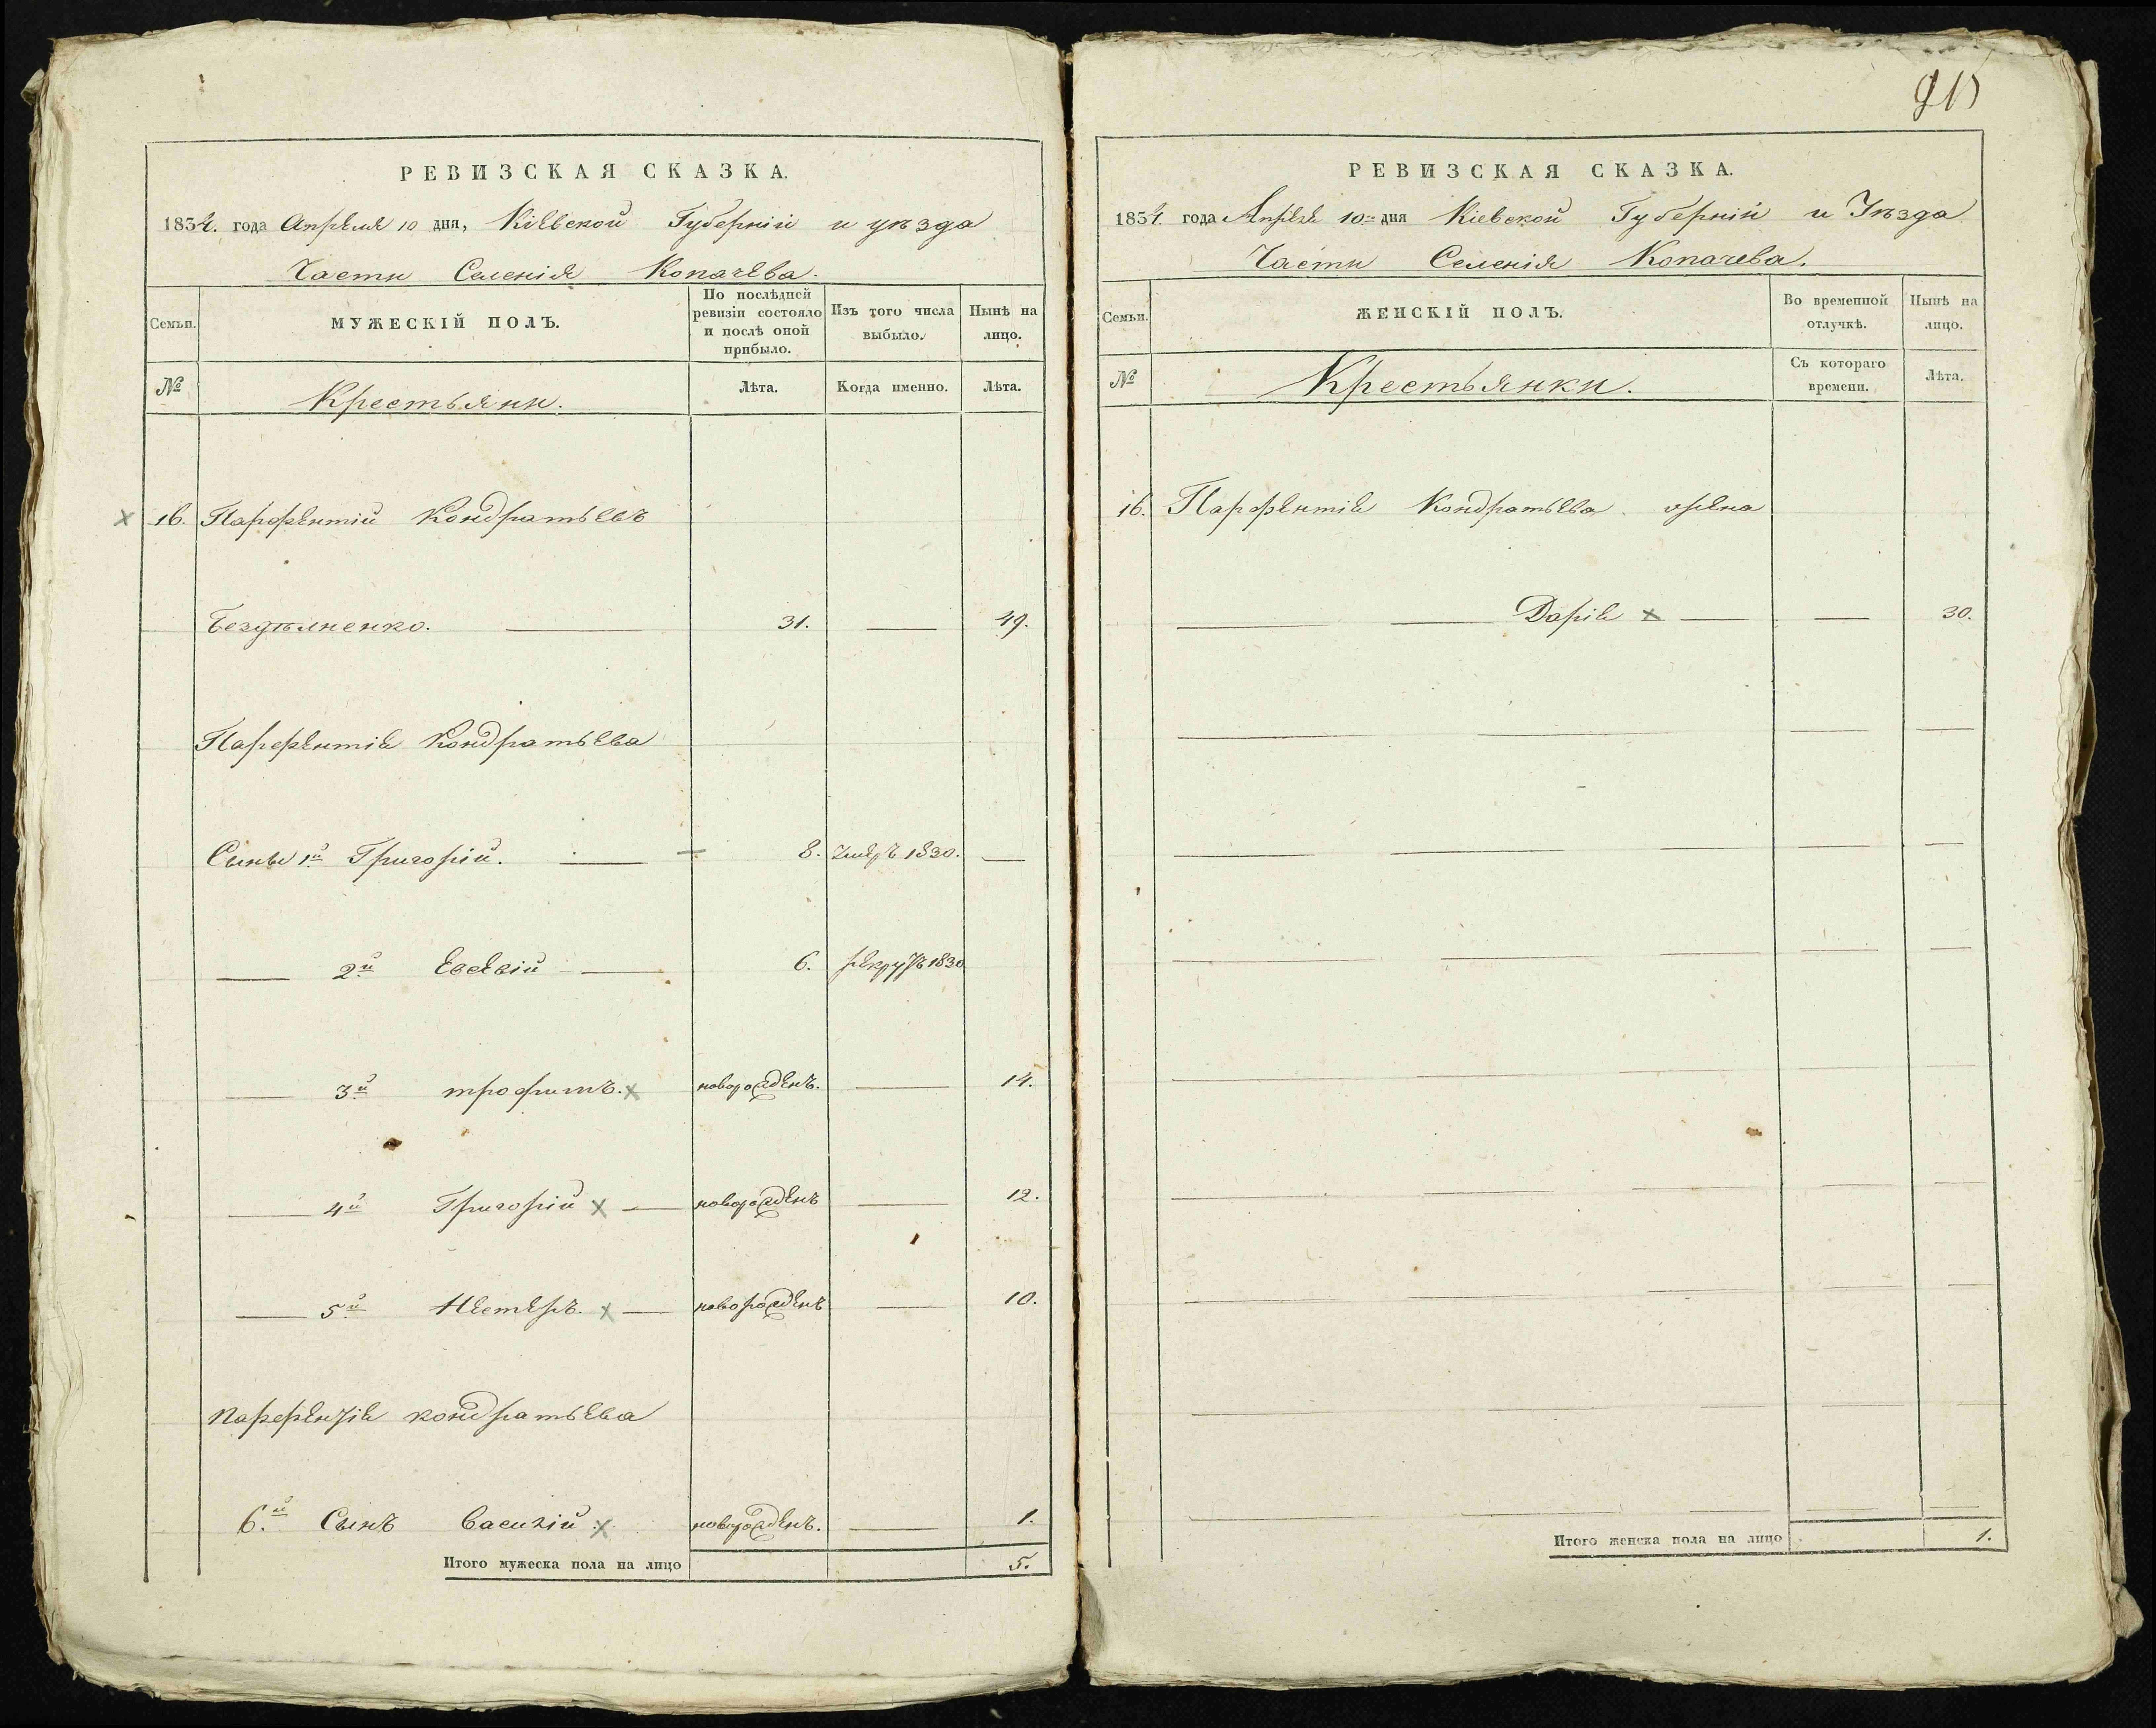 РЕВИЗСКАЯ СКАЗКА.
1834. года Апреля 10 дня, Кіевской Губерніи и уѣзда
Части Селенія Копачева.
Семьи.
МУЖЕСКІЙ ПОЛЪ.
По послѣдней ревизіи состояло и послѣ оной прибыло.
Изъ того числа выбыло.
Нынѣ на лицо.
№
Крестьяни.
Лѣта.
Когда именно.
Лѣта.
16. Парфентій Кондратьевъ
31. 49.
Парфентія Кондратьева
Сыны 1й Григорій. 8. 1830.
2й Евсевій 6. рекрутъ 1830
3й трофимъ. новорожденъ. 14.
4й Григорій новорожденъ 12.
5й Нестеръ. новорожденъ 10.
парфентія кондратьева
6.й Сынъ Василій. новорожденъ. 1.
Итого мужеска пола на лицо 5.
РЕВИЗСКАЯ СКАЗКА.
1834. года Апреля 10го дня Кіевской Губерніи и Уѣзда
Части Селенія Копачева.
Семьи.
ЖЕНСКІЙ ПОЛЪ.
Во временной отлучкѣ.
Нынѣ на лицо.
№
Крестьянки.
Съ котораго времени.
Лѣта.
16. Парфентія Кондратьева жена
Дарія 30.
Итого женска пола на лицо 1.